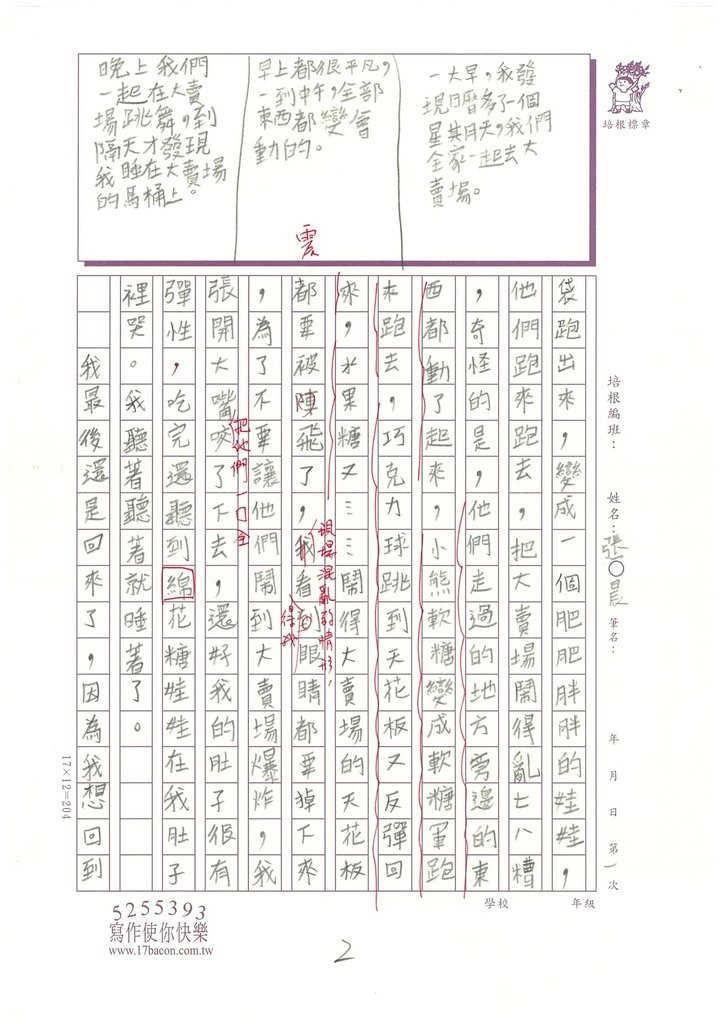 培根標章
一大早，我發
現日曆多了一個
星其月天，我們
全家一起去大
賣場。
早上都很平凡，
一到中午，全部
東西都變會
動的。
晚上我們
一起在大賣
場跳舞，到
隔天才發現
我睡在大賣場
的馬桶上。
震
培根編班：
姓名：張○晨
筆名：
年 月 日 第一次
學校 年級
袋跑出來，變成一個肥肥胖胖的娃娃，
他們跑來跑，去，把大賣場鬧得亂七八糟
，奇怪的是，他，們走過的地方旁邊的東
西都動了起來，小熊軟糖變成軟糖軍跑
來跑去，巧克力球跳到天花板又反彈回
來，水果糖又……鬧得大賣場的天花板
都要被陳飛了，我看到眼睛都要掉下來
現場混亂的情形，
得我
，為了不要讓他們鬧到大賣場爆炸，我
張開大嘴咬了下去，還好我的肚子很有
把他們一口全
彈性，吃完還聽到綿花糖娃娃在我肚子
裡哭。我聽著聽著就睡著了。
我最後還是回來了，因為我想回到
17×12=204
5255393
寫作使你快樂
www.17bacon.com.tw
2